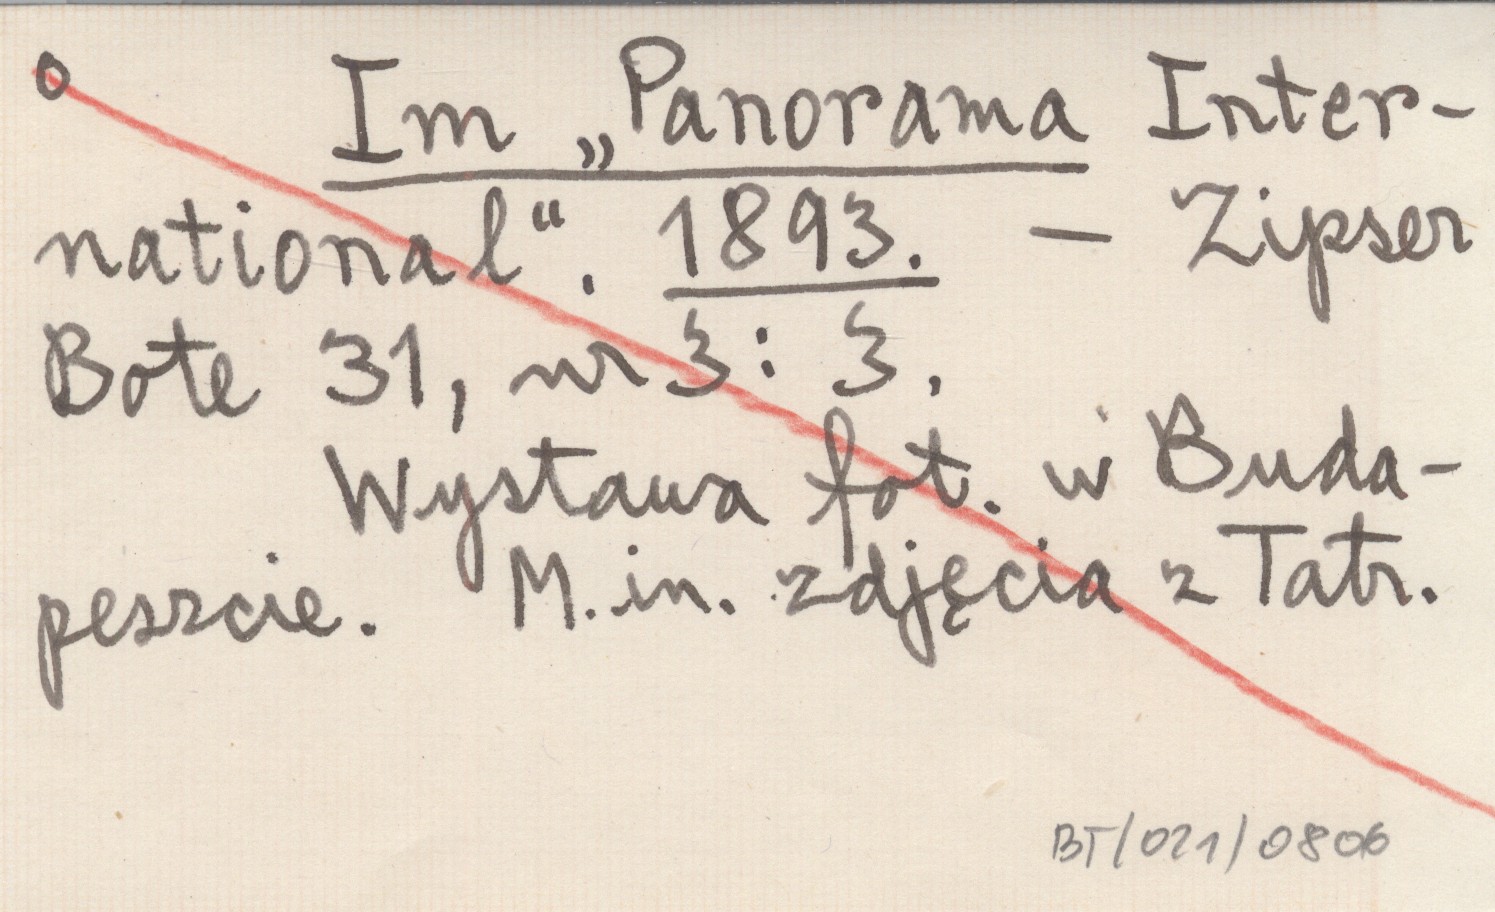 Im „Panorama Inter-
national“. 1893. — Zipser
Bote 31, nr 3: 3.
Wystawa fot. w Buda-
peszcie. M.in. zdjęcia z Tatr.
BT/021/0806